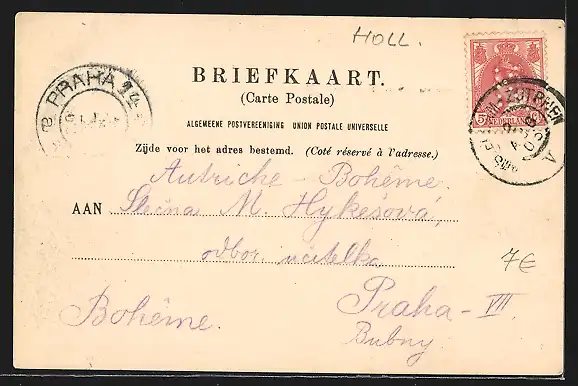 HOLL.
PRAHA 14
BRIEFKAART.
(Carte Postale)
ALGEMEENE POSTVEREENIGING UNION POSTALE UNIVERSELLE
Zijde voor het adres bestemd. (Coté réservé à l'adresse.)
5
NEDERLAND
ZUTPHEN
Autriche - Bohême.
AAN Slečna M. Hykešová,
odbor. učitelka
7€
Praha - VII
Bohême.
Bubny